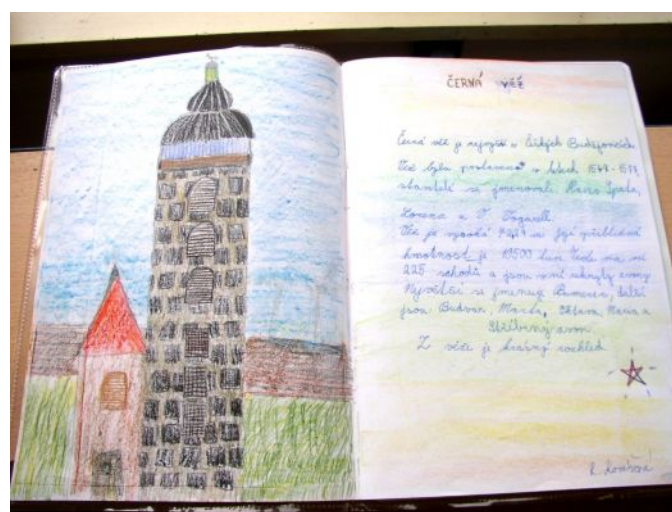 ČERNÁ VĚŽ
Černá věž je nejvyšší v Českých Budějovicích.
Věž byla postavena v letech 1549-1577,
stavitelé se jmenovali Hans Spatz,
Lorenz a V. Vogarell.
Věž je vysoká 72,29 a její přibližná
hmotnost je 10500 tun. Vede na ni
225 schodů a jsou v ní ukryty zvony.
Největší se jmenuje Bumerin, další
jsou Budvar, Marta, Maria a
Stříbrný zvon.
Z věže je krásný rozhled.